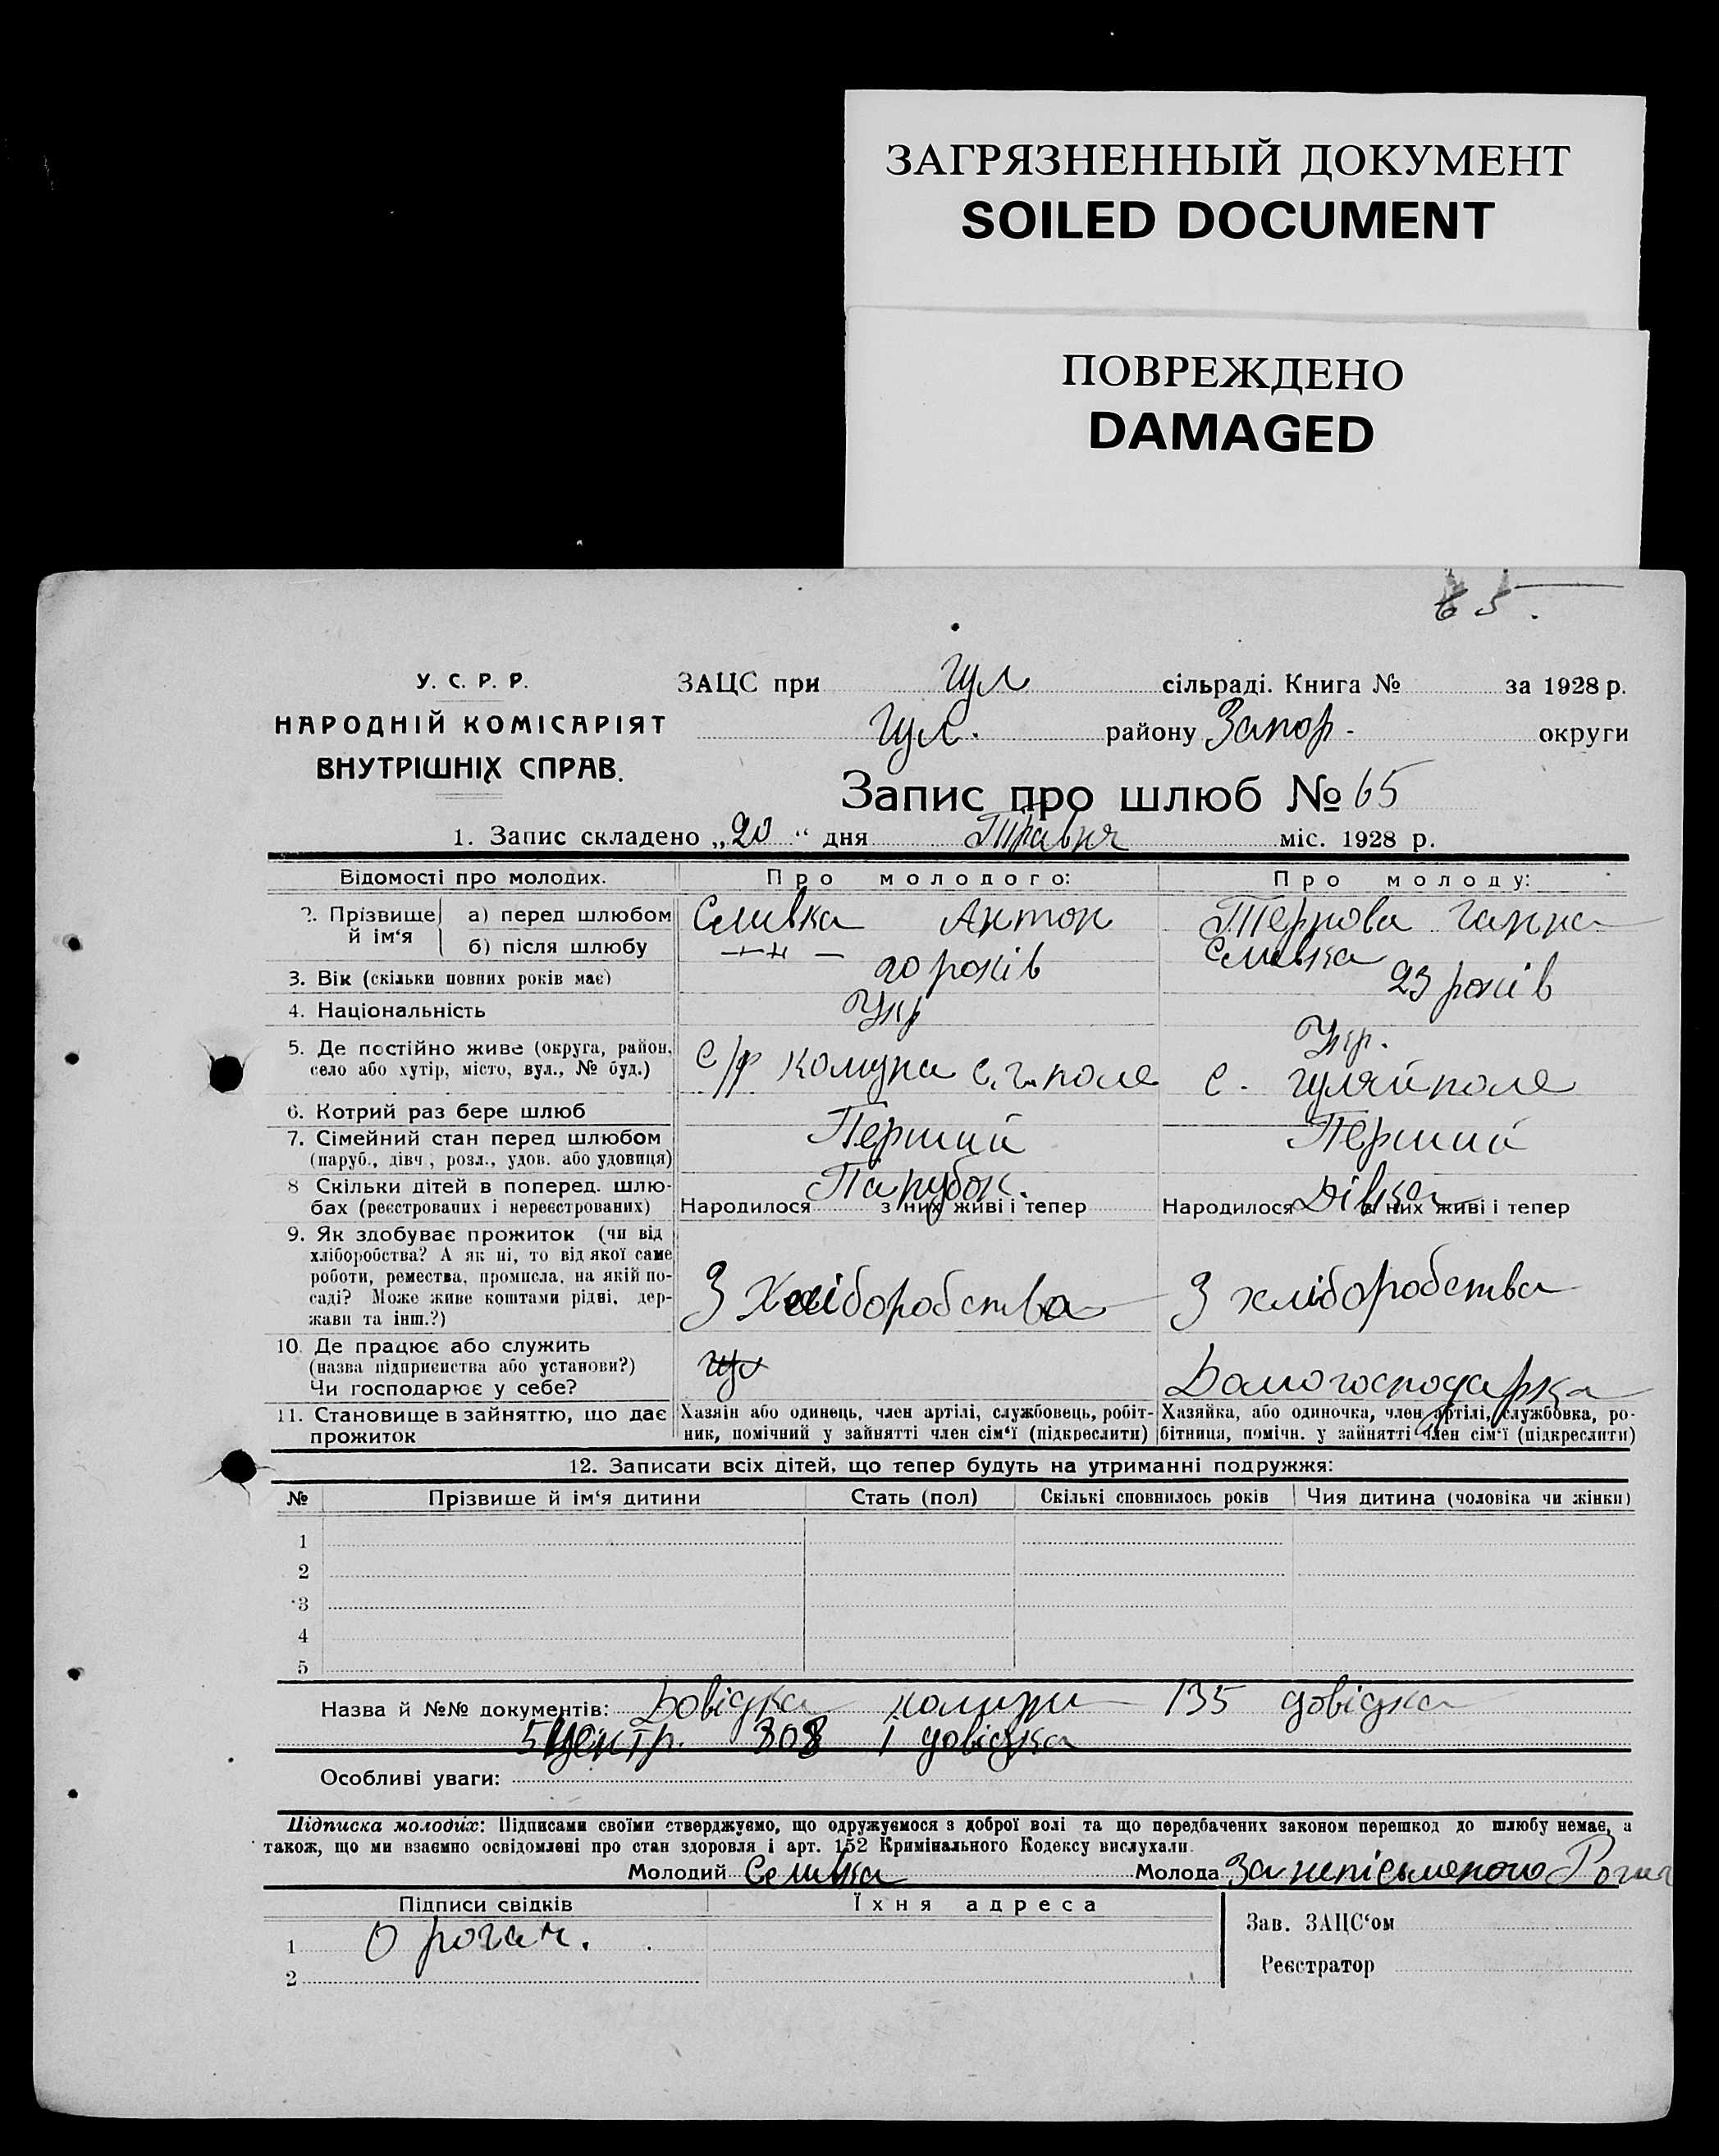 ЗАГРЯЗНЕННЫЙ ДОКУМЕНТ
SOILED DOCUMENT
ПОВРЕЖДЕНО
DAMAGED
65.
У. С. Р. Р.
НАРОДНІЙ КОМІСАРІЯТ
ВНУТРІШНІХ СПРАВ.
ЗАЦС при Гул сільраді. Книга № за 1928 р.
Гул. району Запор - округи
Запис про шлюб № 65
1. Запис складено „20“ дня Травня міс. 1928 р.
Відомості про молодих. Про молодого: Про молоду:
2. Прізвище й ім‘я а) перед шлюбом Сливка Антон Тернова Ганна
б) після шлюбу —„— Сливка
3. Вік (скільки повних років має) 20 років 23 років
4. Національність Укр Укр.
5. Де постійно живе (округа, район, село або хутір, місто, вул., № буд.) с/г комуна с. г. поле с. Гуляйполе
6. Котрий раз бере шлюб Перший Перший
7. Сімейний стан перед шлюбом (паруб., дівч., розл., удов. або удовиця) Парубок. Дівка
8 Скільки дітей в поперед. шлюбах (реєстрованих і нереєстрованих) Народилося з них живі і тепер Народилося з них живі і тепер
9. Як здобуває прожиток (чи від хліборобства? А як ні, то від якої саме роботи, ремества, промисла, на якій посаді? Може живе коштами рідні, держави та інш.?) З Хліборобства З хліборобства
10. Де працює або служить (назва підприєнства або установи?) Чи господарює у себе? Домогосподарка
11. Становище в зайняттю, що дає прожиток Хазяін або одинець, член артілі, службовець, робітник, помічний у зайнятті член сім‘ї (підкреслити) Хазяйка, або одиночка, член артілі, службовка, робітниця, помічн. у зайнятті член сім‘ї (підкреслити)
12. Записати всіх дітей, що тепер будуть на утриманні подружжя:
№ Прізвище й ім‘я дитини Стать (пол) Скількі сповнилось років Чия дитина (чоловіка чи жінки)
1
2
3
4
5
Назва й №№ документів: Довідка комуни 135 довідка
5 Центр. 308 і довідка
Особливі уваги:
Підписка молодих: Підписами своїми стверджуємо, що одружуємося з доброї волі та що передбачених законом перешкод до шлюбу немає, а
також, що ми взаємно освідомлені про стан здоровля і арт. 152 Кримінального Кодексу вислухали.
Молодий Сливка Молода За непісьменого
Підписи свідків Їхня адреса
1 О рогач.
2
Зав. ЗАЦС‘ом
Реєстратор